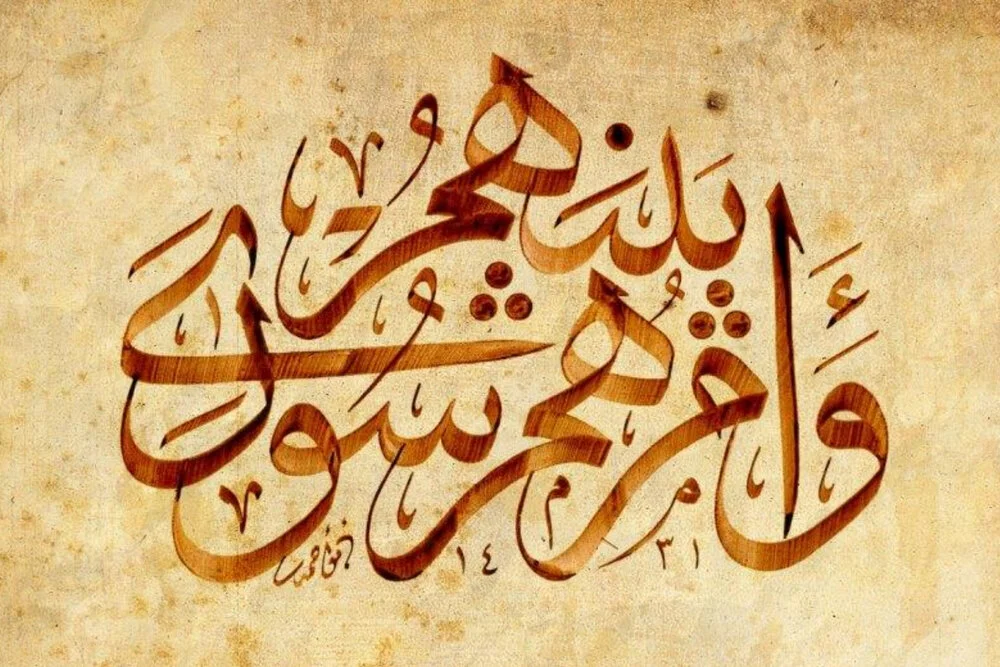 وَأَمْرُهُمْ شُورَى
بَيْنَهُمْ
١٤٣١